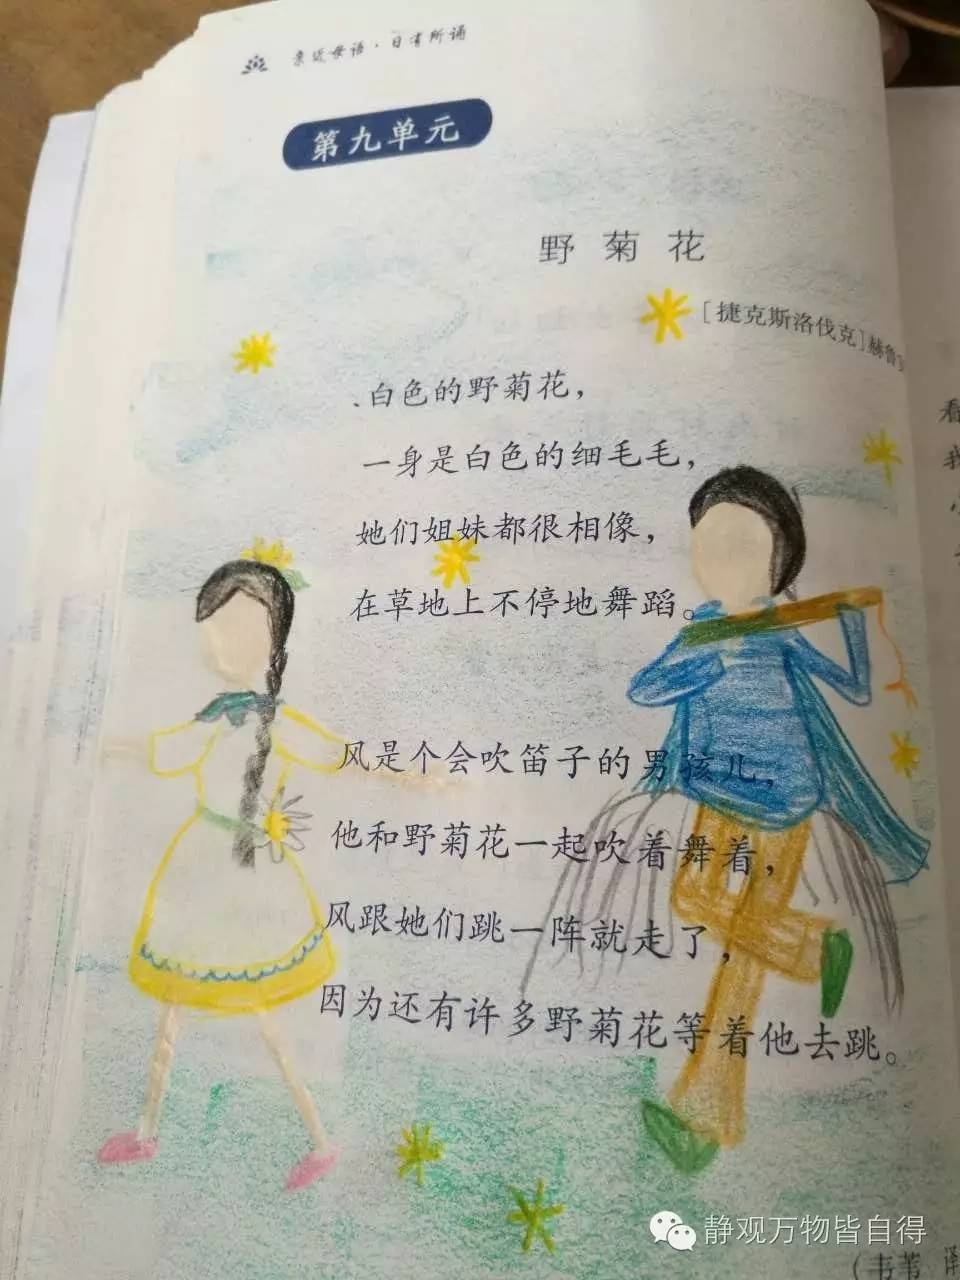 亲近母语·日有所诵
第九单元
野菊花
[捷克斯洛伐克]赫鲁
、白色的野菊花，
一身是白色的细毛毛，
她们姐妹都很相像，
在草地上不停地舞蹈。
风是个会吹笛子的男孩儿，
他和野菊花一起吹着舞着，
风跟她们跳一阵就走了，
因为还有许多野菊花等着他去跳。
(韦苇 译
看
我
静观万物皆自得